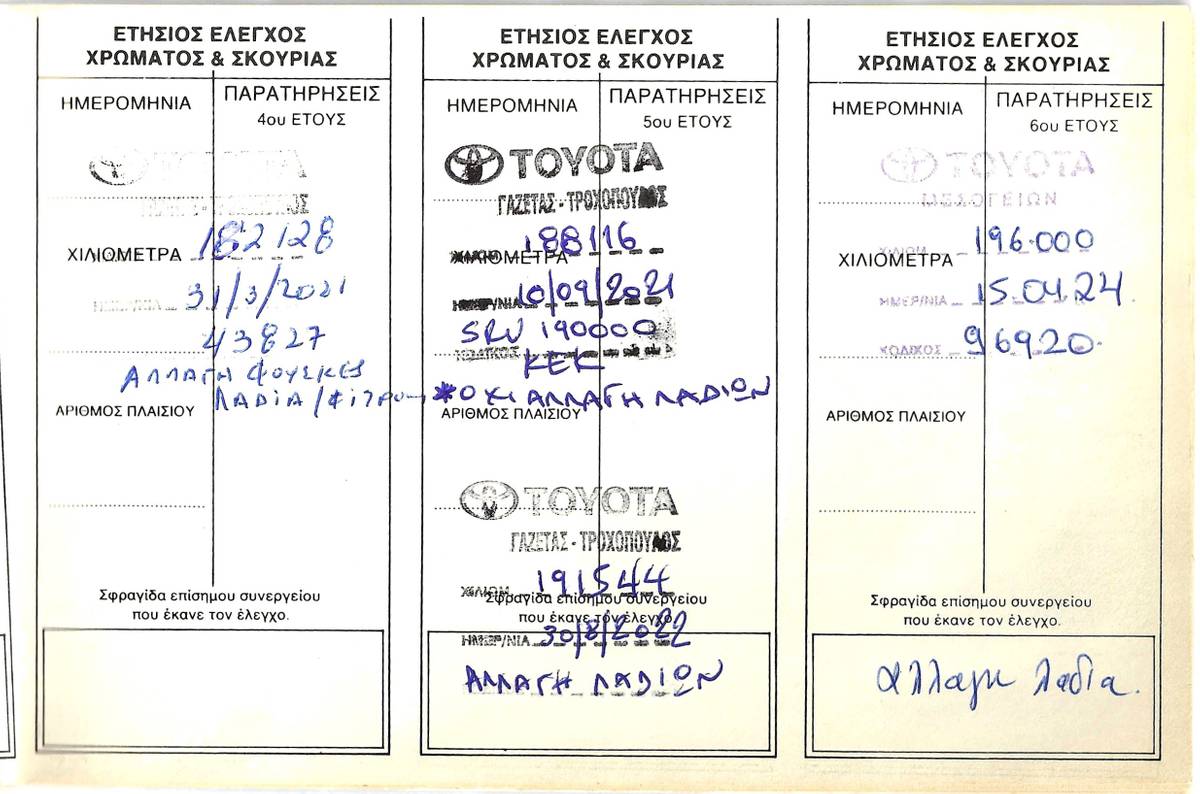 ΕΤΗΣΙΟΣ ΕΛΕΓΧΟΣ
ΧΡΩΜΑΤΟΣ & ΣΚΟΥΡΙΑΣ
ΗΜΕΡΟΜΗΝΙΑ
ΠΑΡΑΤΗΡΗΣΕΙΣ
4ου ΕΤΟΥΣ
TOYOTA
182128
ΧΙΛΙΟΜΕΤΡΑ
ΗΜΕΡ/ΝΙΑ 31/3/2021
43827
ΑΛΛΑΓΗ ΦΟΥΣΚΕΣ
ΛΑΔΙΑ/
ΑΡΙΘΜΟΣ ΠΛΑΙΣΙΟΥ
Σφραγίδα επίσημου συνεργείου
που έκανε τον έλεγχο.
ΕΤΗΣΙΟΣ ΕΛΕΓΧΟΣ
ΧΡΩΜΑΤΟΣ & ΣΚΟΥΡΙΑΣ
ΗΜΕΡΟΜΗΝΙΑ
ΠΑΡΑΤΗΡΗΣΕΙΣ
5ου ΕΤΟΥΣ
TOYOTA
ΓΑΖΕΤΑΣ - ΤΡΟΧΟΠΟΥΛΟΣ
188116
ΧΙΛΙΟΜΕΤΡΑ
ΗΜΕΡ/ΝΙΑ 10/09/2021
SRV 190000
ΚΩΔΙΚΟΣ
ΚΕΚ
*ΟΧΙ ΑΛΛΑΓΗ ΛΑΔΙΩΝ
ΑΡΙΘΜΟΣ ΠΛΑΙΣΙΟΥ
TOYOTA
ΓΑΖΕΤΑΣ - ΤΡΟΧΟΠΟΥΛΟΣ
ΧΙΛΙΟΜ 191544
Σφραγίδα επίσημου συνεργείου
που έκανε τον έλεγχο.
ΗΜΕΡ/ΝΙΑ 30/8/2022
ΑΛΛΑΓΗ ΛΑΔΙΩΝ
ΕΤΗΣΙΟΣ ΕΛΕΓΧΟΣ
ΧΡΩΜΑΤΟΣ & ΣΚΟΥΡΙΑΣ
ΗΜΕΡΟΜΗΝΙΑ
ΠΑΡΑΤΗΡΗΣΕΙΣ
6ου ΕΤΟΥΣ
TOYOTA
ΜΕΣΟΓΕΙΩΝ
ΧΙΛΙΟΜ 196.000
ΧΙΛΙΟΜΕΤΡΑ
ΗΜΕΡ/ΝΙΑ 15.04.24
ΚΩΔΙΚΟΣ 96920
ΑΡΙΘΜΟΣ ΠΛΑΙΣΙΟΥ
Σφραγίδα επίσημου συνεργείου
που έκανε τον έλεγχο.
αλλαγη λαδια.